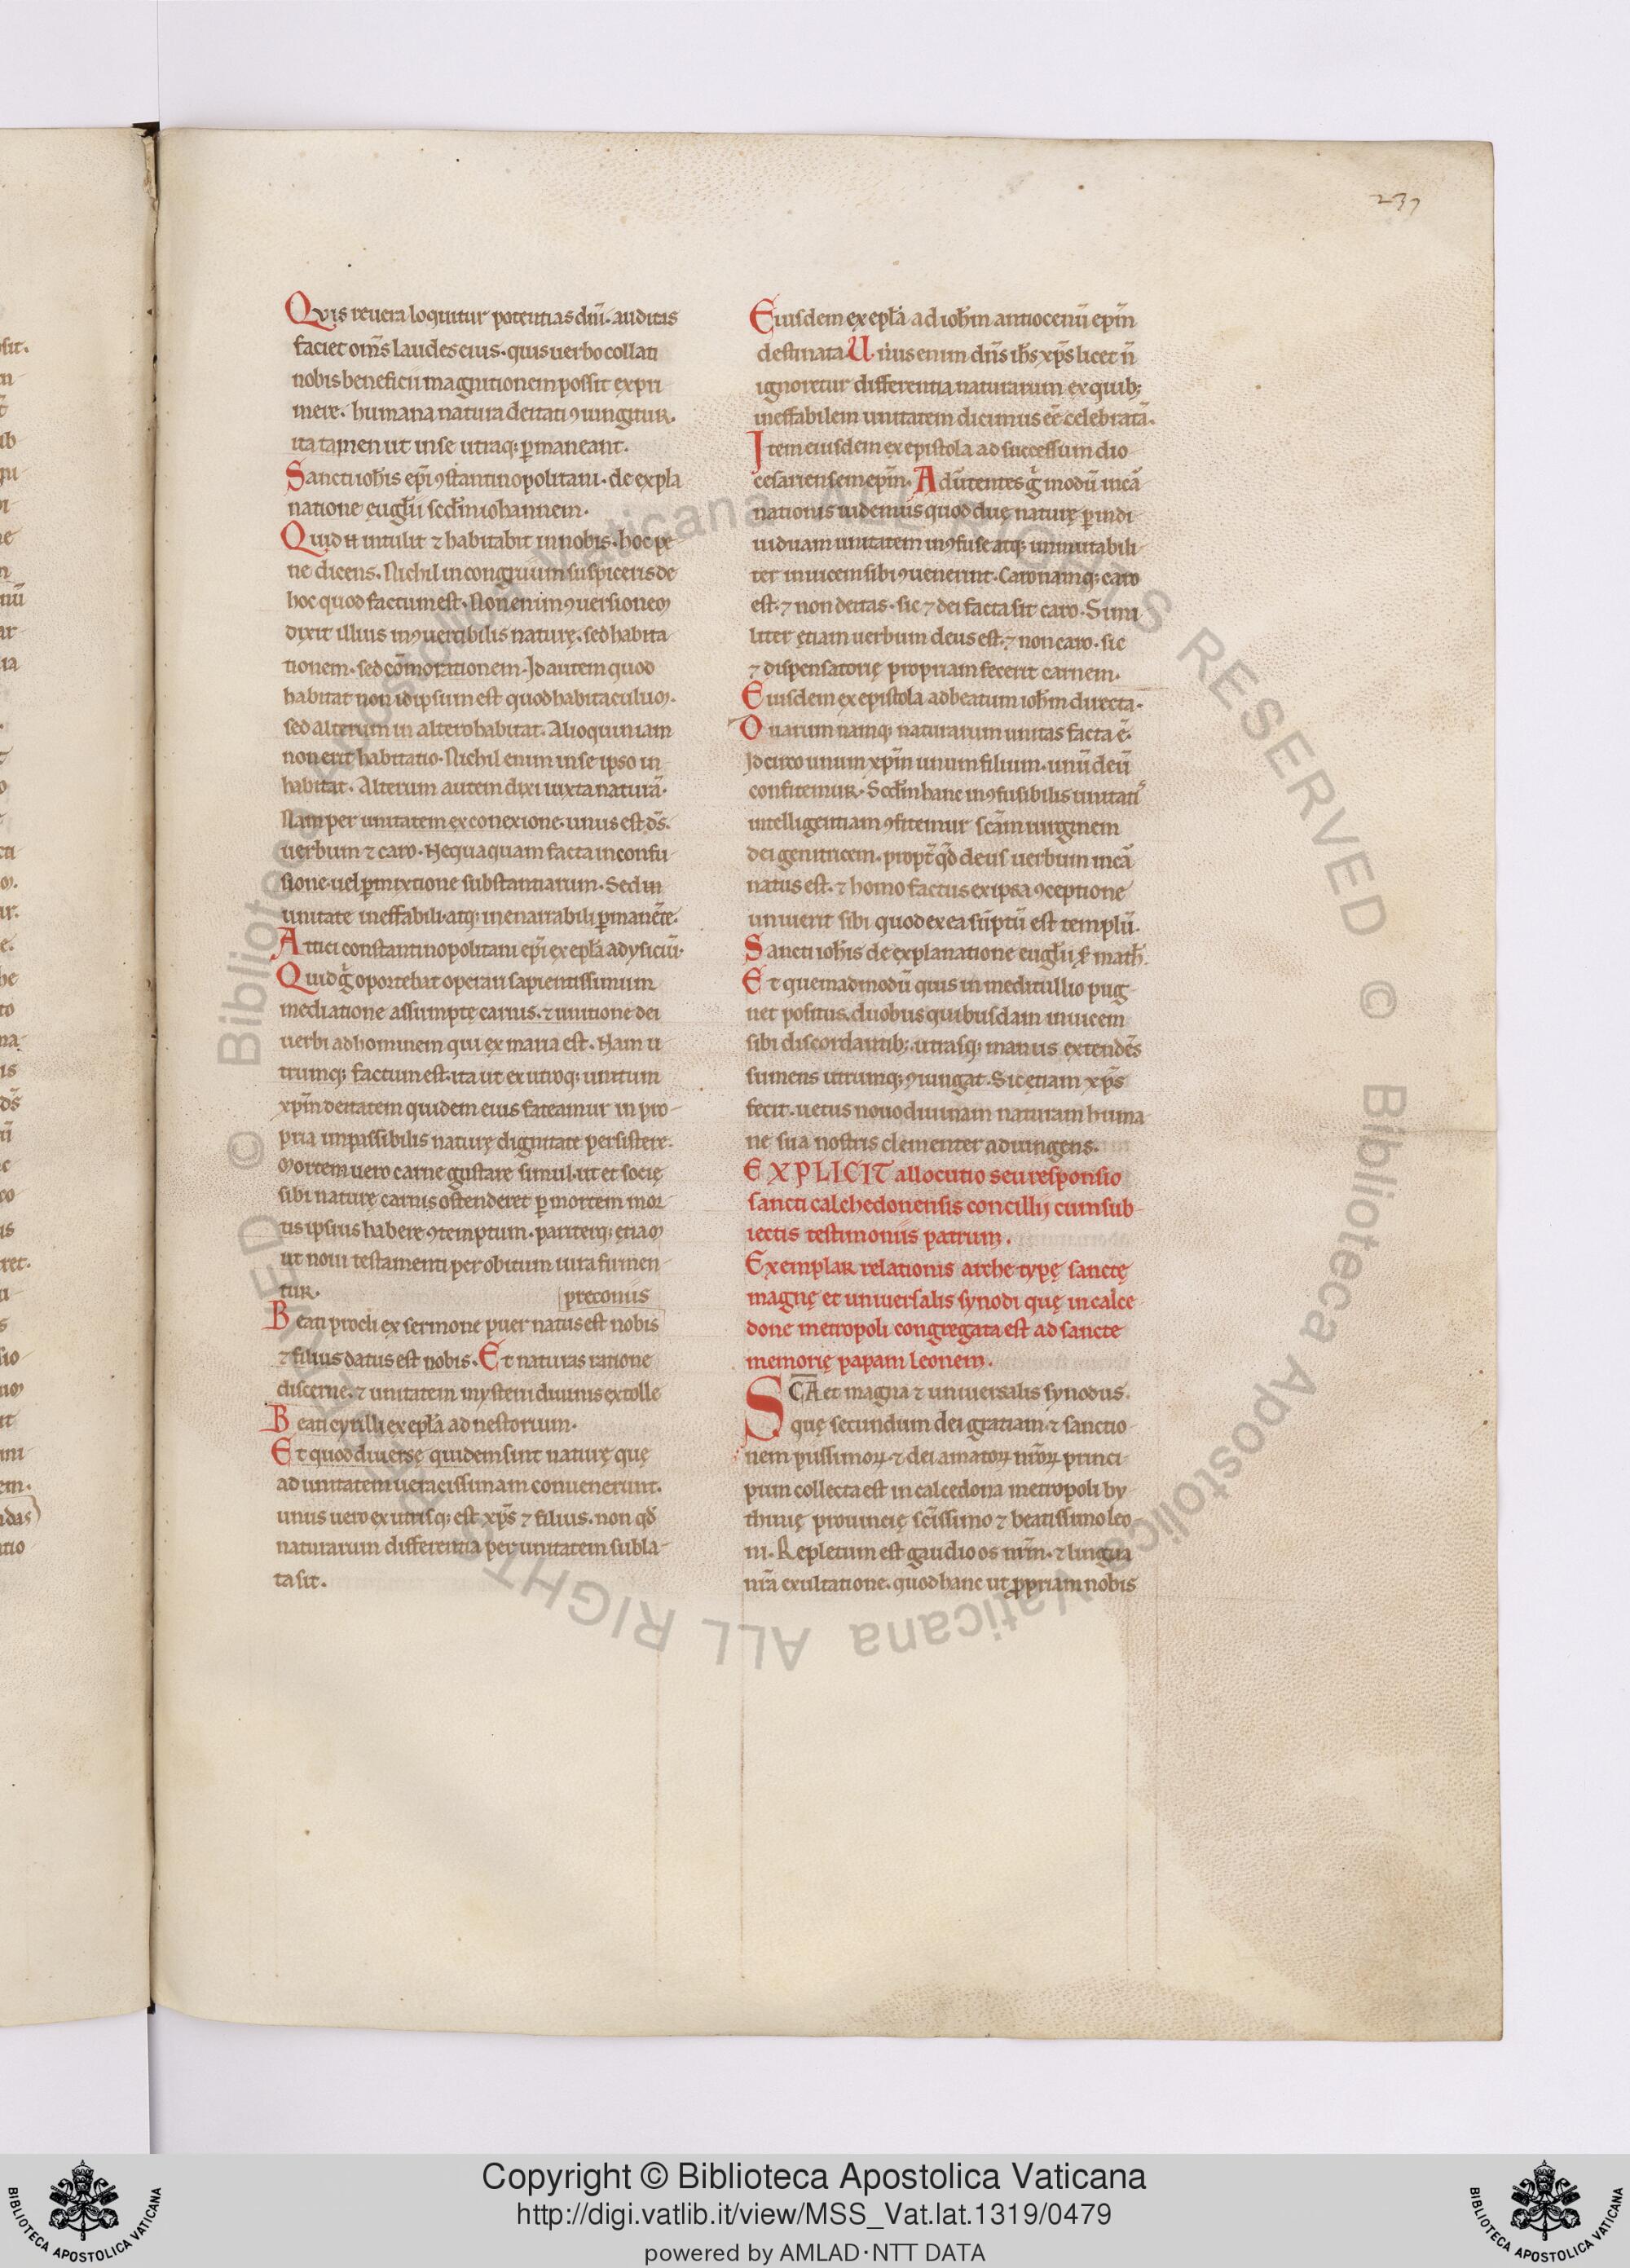 237
Quis reuera loquitur potentias dn̄i. auditas
faciet om̄s laudes eius. quis uerbo collati
nobis beneficii magnitionem possit expri
mere. humana natura deitati ꝯiungitur.
ita tamen ut in se utraq; ꝑmaneant.
Sancti ioh̄is ep̄i ꝯstantinopolitani. de expla
natione euglīi scd̄m iohannem.
Quid intulit ⁊ habitabit in nobis. hoc pe
ne dicens. Nichil incongruum suspiceris de
hoc quod factum est. Non enim ꝯuersionem
dixit illius inꝯuertibilis naturę. sed habita
tionem. sed cōmorationem. Id autem quod
habitat non id ipsum est quod habitaculum.
sed alterum in altero habitat. Alioquin iam
non erit habitatio. Nichil enim in se ipso in
habitat. Alterum autem dixi iuxta naturā.
Nam per unitatem ex conexione. unus est ds̄.
uerbum ⁊ caro. Nequaquam facta in confu
sione. uel ꝑmixtione substantiarum. Sed in
unitate ineffabili. atq; inenarrabili ꝑmanēte.
Attici constantinopolitani ep̄i ex ep̄la ad ysiciū.
Quid gͦ oportebat operari sapientissimum
mediatione assumptę carnis. ⁊ unitione dei
uerbi ad hominem qui ex maria est. Nam u
trumq; factum est. ita ut ex utroq; unitum
xp̄m deitatem quidem eius fateamur in pro-
pria impassibilis naturę dignitate persistere.
Mortem uero carne gustare simul. ut et socię
sibi naturę carnis ostenderet ꝑ mortem mor-
tis ipsius habere ꝯtemptum. pariterq; etiam
ut noui testamenti per obitum iura firmen-
tur. preconiis
Beati procli ex sermone puer natus est nobis
⁊ filius datus est nobis. Et naturas ratione
discerne. ⁊ unitatem mysterii diuinis extolle
Beati cyrilli ex ep̄la ad nestorium.
Et quod diuersę quidem sint naturę quę
ad unitatem ueracissimam conuenerunt.
unus uero ex utrisq; est xp̄s ⁊ filius. non qd̄
naturarum differentia per unitatem subla-
ta sit.
Eiusdem ex ep̄la ad ioh̄m antiocenū ep̄m
destinata Unus enim dn̄s ih̄s xp̄s licet n̄
ignoretur differentia naturarum ex quib;
ineffabilem unitatem dicimus ēē celebratā.
Item eiusdem ex epistola ad successum dio-
cesariensem ep̄m. Aduertentes gͦ modū incā
nationis uidemus quod duę naturę ꝑ indi
uiduam unitatem inꝯfuse atq; inmutabili-
ter inuicem sibi ꝯuenerint. Caro namq; caro
est. ⁊ non deitas. sic ⁊ dei facta sit caro. Simi
liter etiam uerbum deus est. ⁊ non caro. sic
⁊ dispensatorię propriam fecerit carnem.
Eiusdem ex epistola ad beatum ioh̄m directa.
Duarum namq; naturarum unitas facta ē.
Idcirco unum xp̄m unum filium. unū deū
confitemur. Scd̄m hanc inꝯfusibilis unitatis
intelligentiam ꝯfitemur scām uirginem
dei genitricem. propt̄ qd̄ deus uerbum incā
natus est. ⁊ homo factus ex ipsa ꝯceptione
uniuerit sibi quod ex ea sūptū est templū.
Sancti ioh̄is de explanatione euglīi math̄.
Et quemadmodū quis in meditullio pug-
net positus. duobus quibusdam inuicem
sibi discordantib;. utrasq; manus extendēs
sumens utrumq; ꝯiungat. Sic etiam xp̄s
fecit. uetus nouo diuinam naturam huma
ne sua nostris clementer adiungens.
EXPLICIT allocutio seu responsio
sancti calchedonensis concilii cum sub-
iectis testimoniis patrum.
Exemplar relationis arche typę sanctę
magnę et uniuersalis synodi quę in calce-
done metropoli congregata est ad sancte
memorię papam leonem.
SC̄A et magna ⁊ uniuersalis synodus.
quę secundum dei gratiam. ⁊ sanctio-
nem piissimoꝝ. ⁊ dei amatoꝝ nr̄oꝝ princi-
pum collecta est in calcedona metropoli by-
thinię prouincię sc̄issimo ⁊ beatissimo leo
ni. Repletum est gaudio os nr̄m. ⁊ lingua
nr̄a exultatione. quod hanc ut ꝓpriam nobis
Copyright © Biblioteca Apostolica Vaticana
http://digi.vatlib.it/view/MSS_Vat.lat.1319/0479
powered by AMLAD·NTT DATA